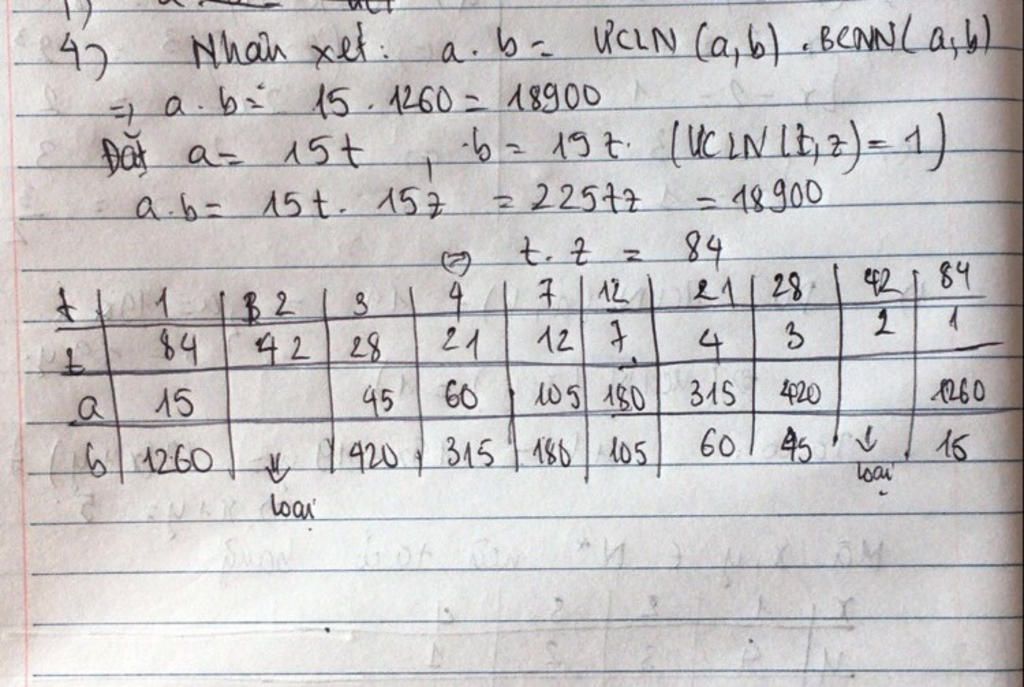 4) Nhân xet: a.b = ƯCLN (a,b) . BCNN(a,b)
=> a.b = 15 . 1260 = 18900
Đặt a = 15t , b = 15z. (ƯCLN(t,z) = 1)
a.b = 15t. 15z = 225tz = 18900
<=> t. z = 84
t 1 2 3 4 7 12 21 28 42 84
z 84 42 28 21 12 7 4 3 2 1
a 15 45 60 105 180 315 420 1260
b 1260 ↓ 420 315 180 105 60 45 ↓ 15
loại loại